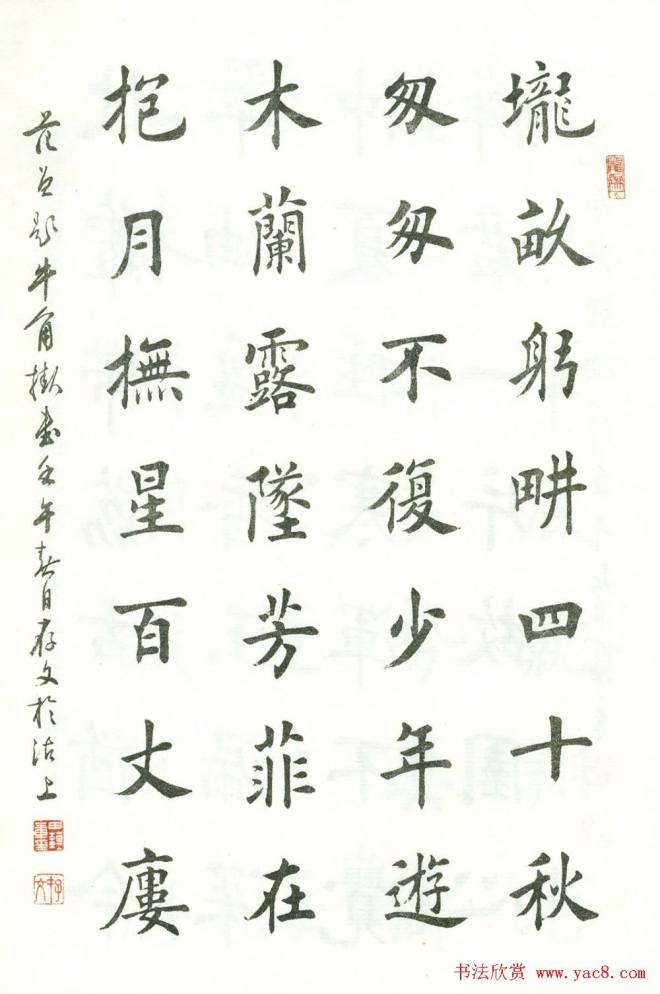 壠畝躬畊四十秋
匆匆不復少年遊
木蘭露墜芳菲在
抱月橅星百丈廔
范曾題牛角掛書壬午春日存文於沽上
书法欣赏 www.yac8.com